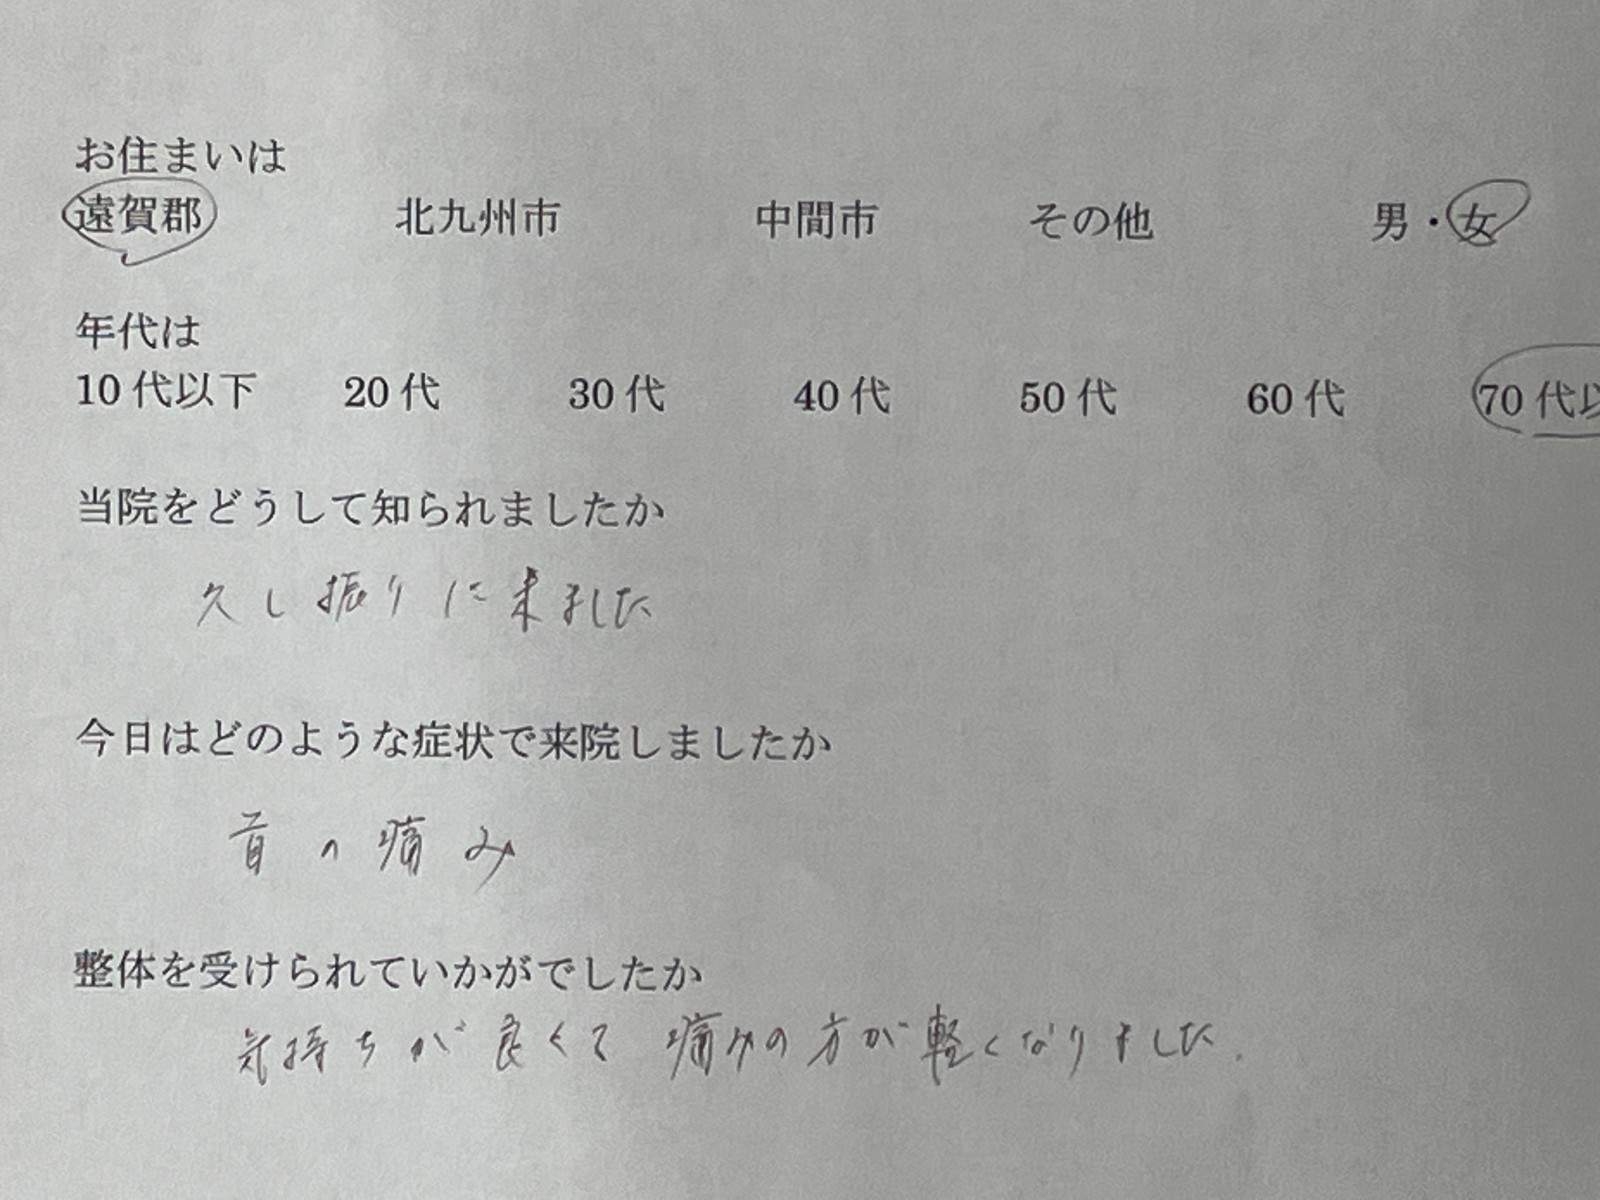 お住まいは
遠賀郡 北九州市 中間市 その他 男・女
年代は
10代以下 20代 30代 40代 50代 60代 70代以
当院をどうして知られましたか
久し振りに来ました
今日はどのような症状で来院しましたか
首の痛み
整体を受けられていかがでしたか
気持ちが良くて 痛みの方が軽くなりました。